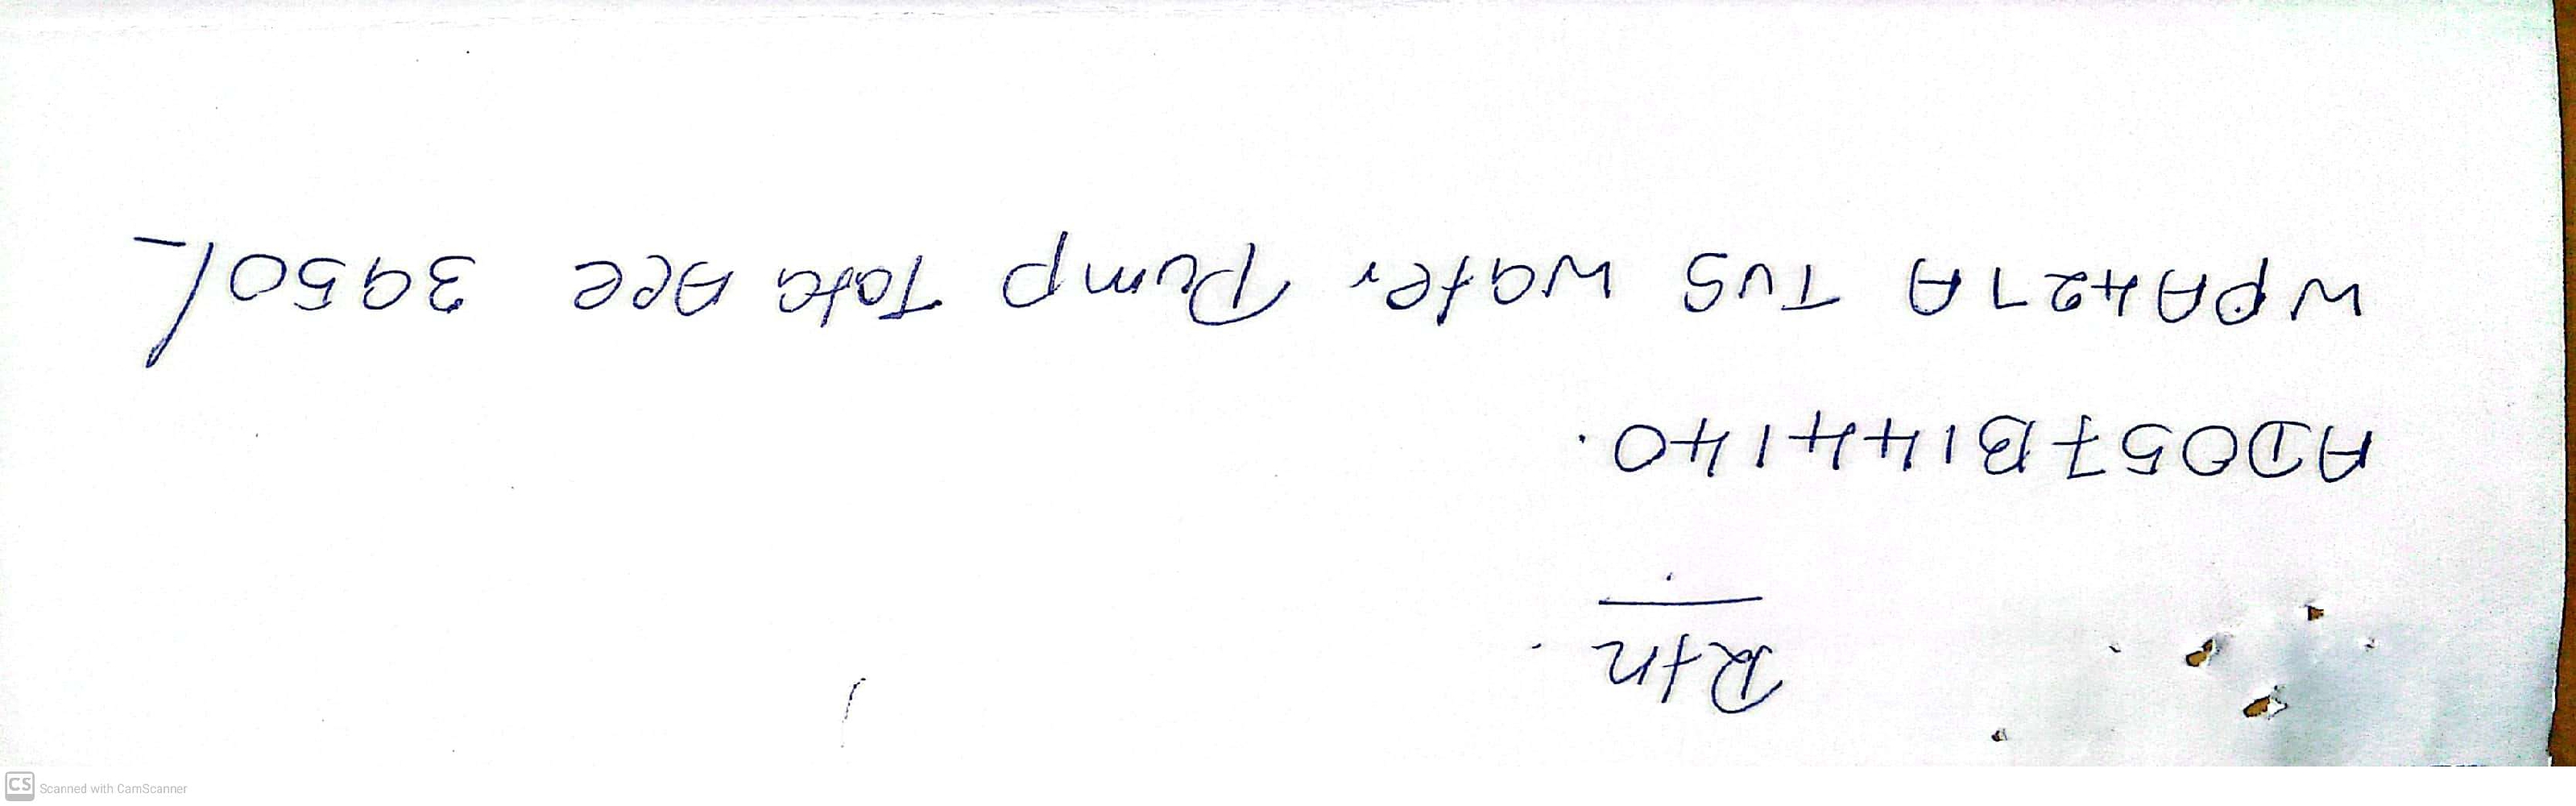 Rtn.
AD057B144140.
WPA427A TVS Water Pump Tata Ace 3950/-
CS Scanned with CamScanner